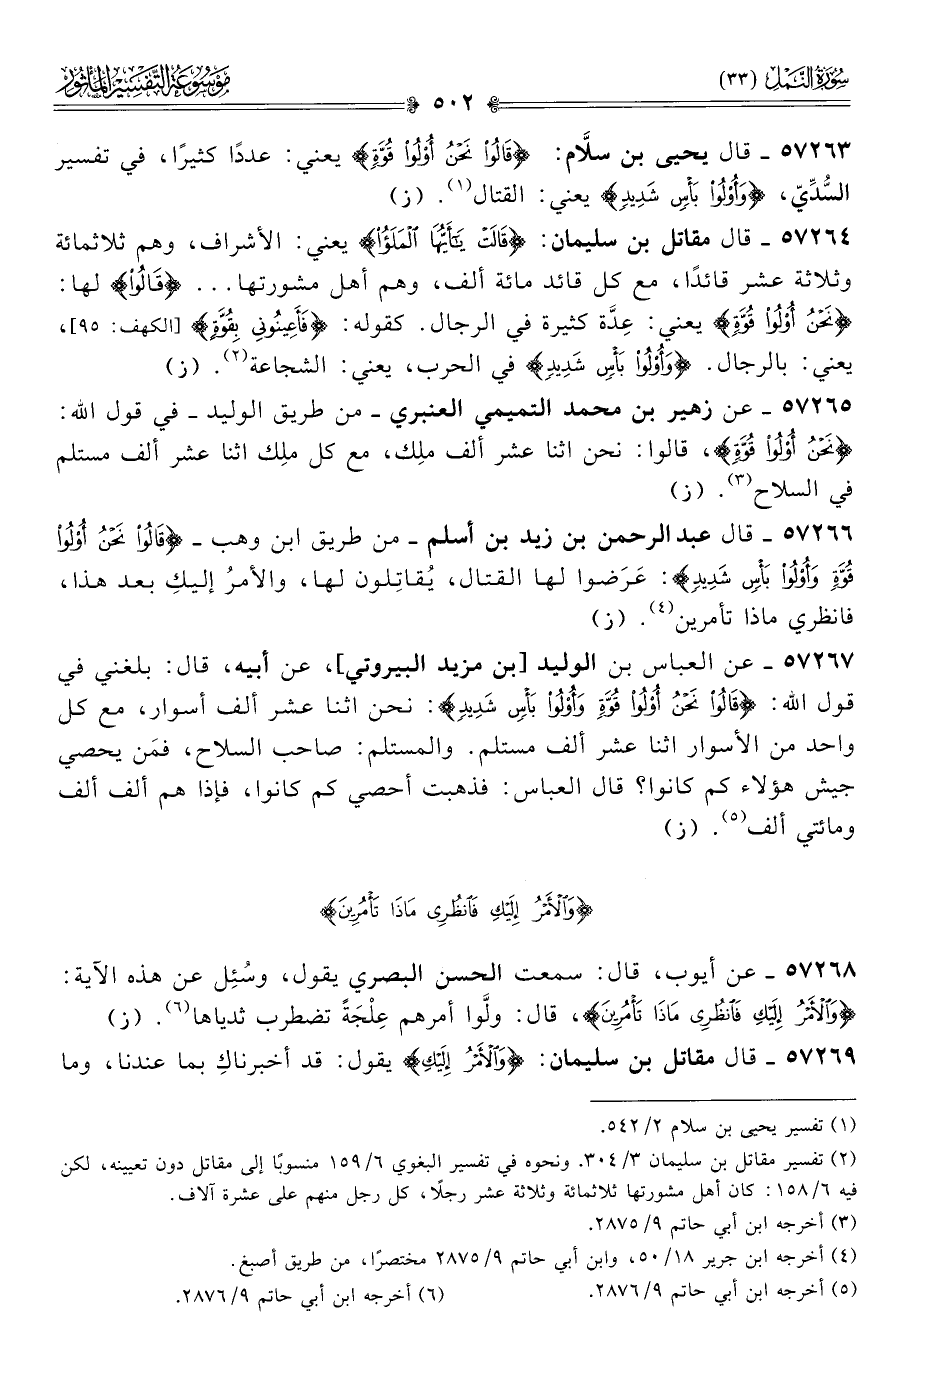 سُورَةُ النَّمْل (٣٣)
موسوعة التفسير المأثور
٥٠٢
٥٧٢٦٣ ـ قال يحيى بن سلَّام: ﴿قَالُوا۟ نَحْنُ أُو۟لُوا۟ قُوَّةٍ﴾ يعني: عددًا كثيرًا، في تفسير
السُّدِّيّ، ﴿وَأُو۟لُوا۟ بَأْسٍ شَدِيدٍ﴾ يعني: القتال(١). (ز)
٥٧٢٦٤ ـ قال مقاتل بن سليمان: ﴿قَالَتْ يَٰٓأَيُّهَا ٱلْمَلَؤُا۟﴾ يعني: الأشراف، وهم ثلاثمائة
وثلاثة عشر قائدًا، مع كل قائد مائة ألف، وهم أهل مشورتها... ﴿قَالُوا۟﴾ لها:
﴿نَحْنُ أُو۟لُوا۟ قُوَّةٍ﴾ يعني: عِدَّة كثيرة في الرجال. كقوله: ﴿فَأَعِينُونِي بِقُوَّةٍ﴾ [الكهف: ٩٥]،
يعني: بالرجال. ﴿وَأُو۟لُوا۟ بَأْسٍ شَدِيدٍ﴾ في الحرب، يعني: الشجاعة(٢). (ز)
٥٧٢٦٥ ـ عن زهير بن محمد التميمي العنبري ـ من طريق الوليد ـ في قول الله:
﴿نَحْنُ أُو۟لُوا۟ قُوَّةٍ﴾، قالوا: نحن اثنا عشر ألف ملِك، مع كل ملِك اثنا عشر ألف مستلم
في السلاح(٣). (ز)
٥٧٢٦٦ ـ قال عبد الرحمن بن زيد بن أسلم ـ من طريق ابن وهب ـ ﴿قَالُوا۟ نَحْنُ أُو۟لُوا۟
قُوَّةٍ وَأُو۟لُوا۟ بَأْسٍ شَدِيدٍ﴾: عَرَضوا لها القتال، يُقاتِلون لها، والأمرُ إليكِ بعد هذا،
فانظري ماذا تأمرين(٤). (ز)
٥٧٢٦٧ ـ عن العباس بن الوليد [بن مزيد البيروتي]، عن أبيه، قال: بلغني في
قول الله: ﴿قَالُوا۟ نَحْنُ أُو۟لُوا۟ قُوَّةٍ وَأُو۟لُوا۟ بَأْسٍ شَدِيدٍ﴾: نحن اثنا عشر ألف أسوار، مع كل
واحد من الأسوار اثنا عشر ألف مستلم. والمستلم: صاحب السلاح، فمَن يحصي
جيش هؤلاء كم كانوا؟ قال العباس: فذهبت أحصي كم كانوا، فإذا هم ألف ألف
ومائتي ألف(٥). (ز)
﴿وَٱلْأَمْرُ إِلَيْكِ فَٱنظُرِى مَاذَا تَأْمُرِينَ﴾
٥٧٢٦٨ ـ عن أيوب، قال: سمعت الحسن البصري يقول، وسُئِل عن هذه الآية:
﴿وَٱلْأَمْرُ إِلَيْكِ فَٱنظُرِى مَاذَا تَأْمُرِينَ﴾، قال: ولَّوا أمرهم عِلْجَةً تضطرب ثدياها(٦). (ز)
٥٧٢٦٩ ـ قال مقاتل بن سليمان: ﴿وَٱلْأَمْرُ إِلَيْكِ﴾ يقول: قد أخبرناكِ بما عندنا، وما
(١) تفسير يحيى بن سلام ٢/ ٥٤٢.
(٢) تفسير مقاتل بن سليمان ٣/ ٣٠٤. ونحوه في تفسير البغوي ٦/ ١٥٩ منسوبًا إلى مقاتل دون تعيينه، لكن
فيه ٦/ ١٥٨: كان أهل مشورتها ثلاثمائة وثلاثة عشر رجلًا، كل رجل منهم على عشرة آلاف.
(٣) أخرجه ابن أبي حاتم ٩/ ٢٨٧٥.
(٤) أخرجه ابن جرير ١٨/ ٥٠، وابن أبي حاتم ٩/ ٢٨٧٥ مختصرًا، من طريق أصبغ.
(٥) أخرجه ابن أبي حاتم ٩/ ٢٨٧٦. (٦) أخرجه ابن أبي حاتم ٩/ ٢٨٧٦.